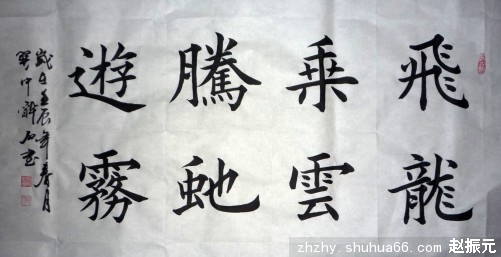 飛龍
乗雲
騰虵
遊霧
歲在壬辰年春月
石书
zhzhy.shuhua66.com 赵振元